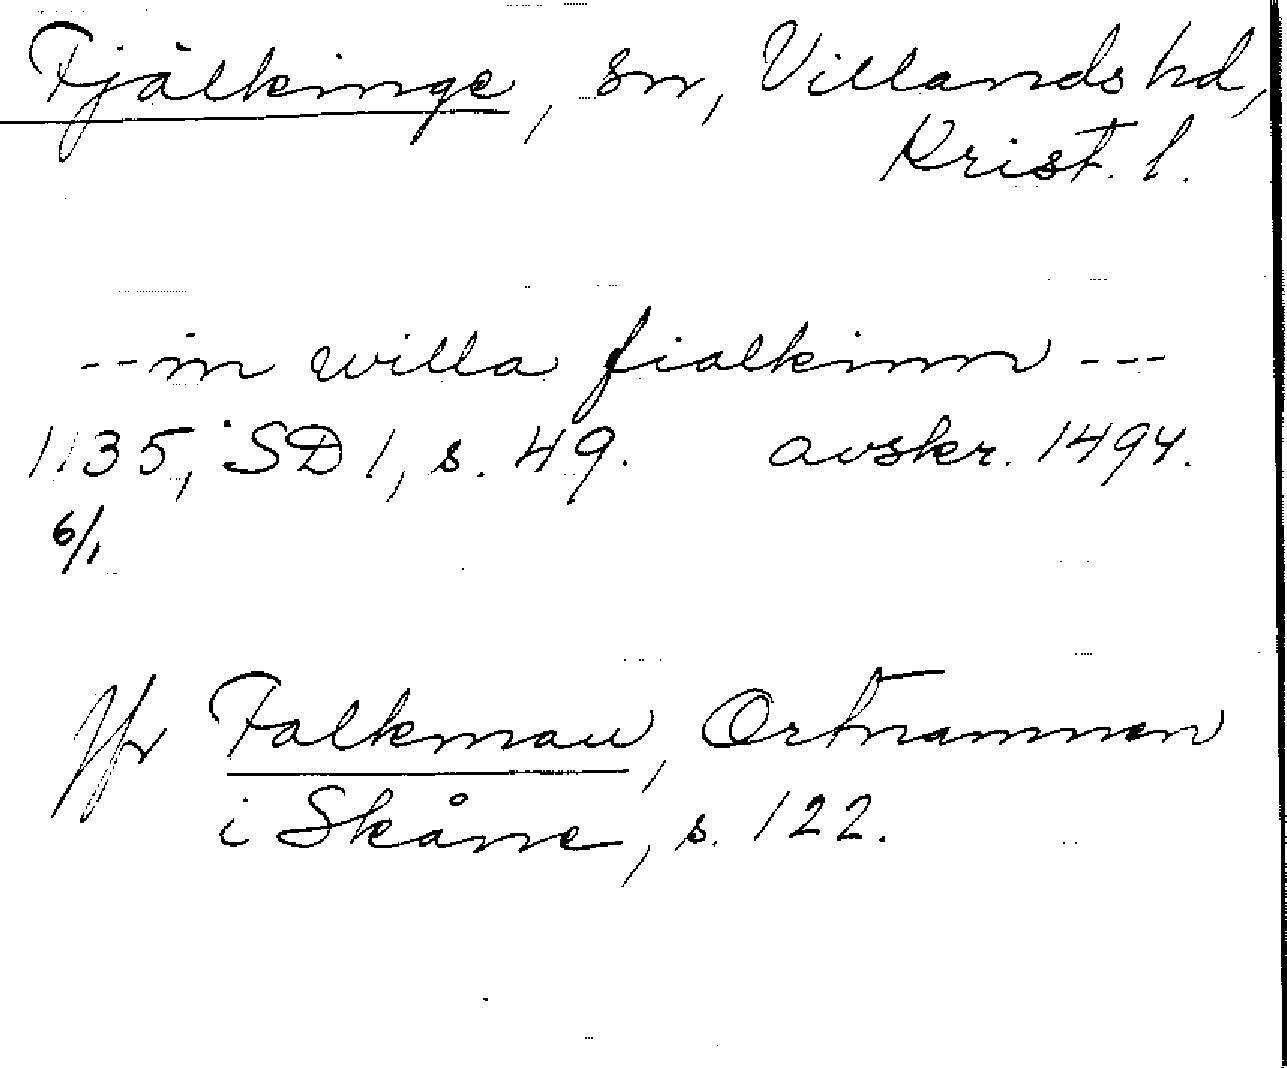 Fjälkinge, sn, Villands hd,
Krist. l.
--in willa fialkinn ---
1135, SD 1, s. 49. avskr. 1494.
6/1
Jfr Falkman, Ortnamnen
i Skåne, s. 122.